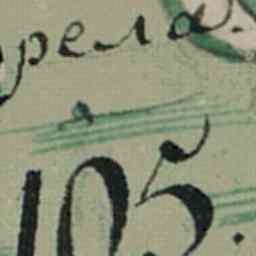 рела
105.